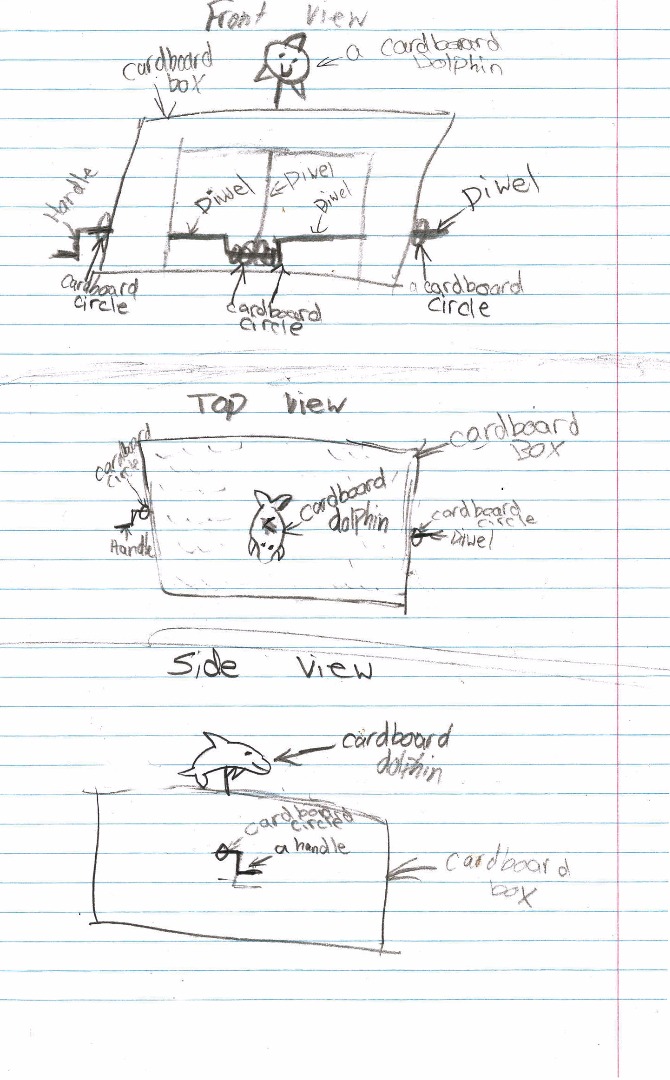 Front View
a cardboard
Dolphin
cardboard
box
Handle
Diwel
Diwel
Diwel
Diwel
cardboard
circle
cardboard
circle
a cardboard
circle
Top View
cardboard
Box
cardboard
circle
cardboard
dolphin
cardboard
circle
Diwel
Handle
Side View
cardboard
dolphin
cardboard
circle
a handle
cardboard
box